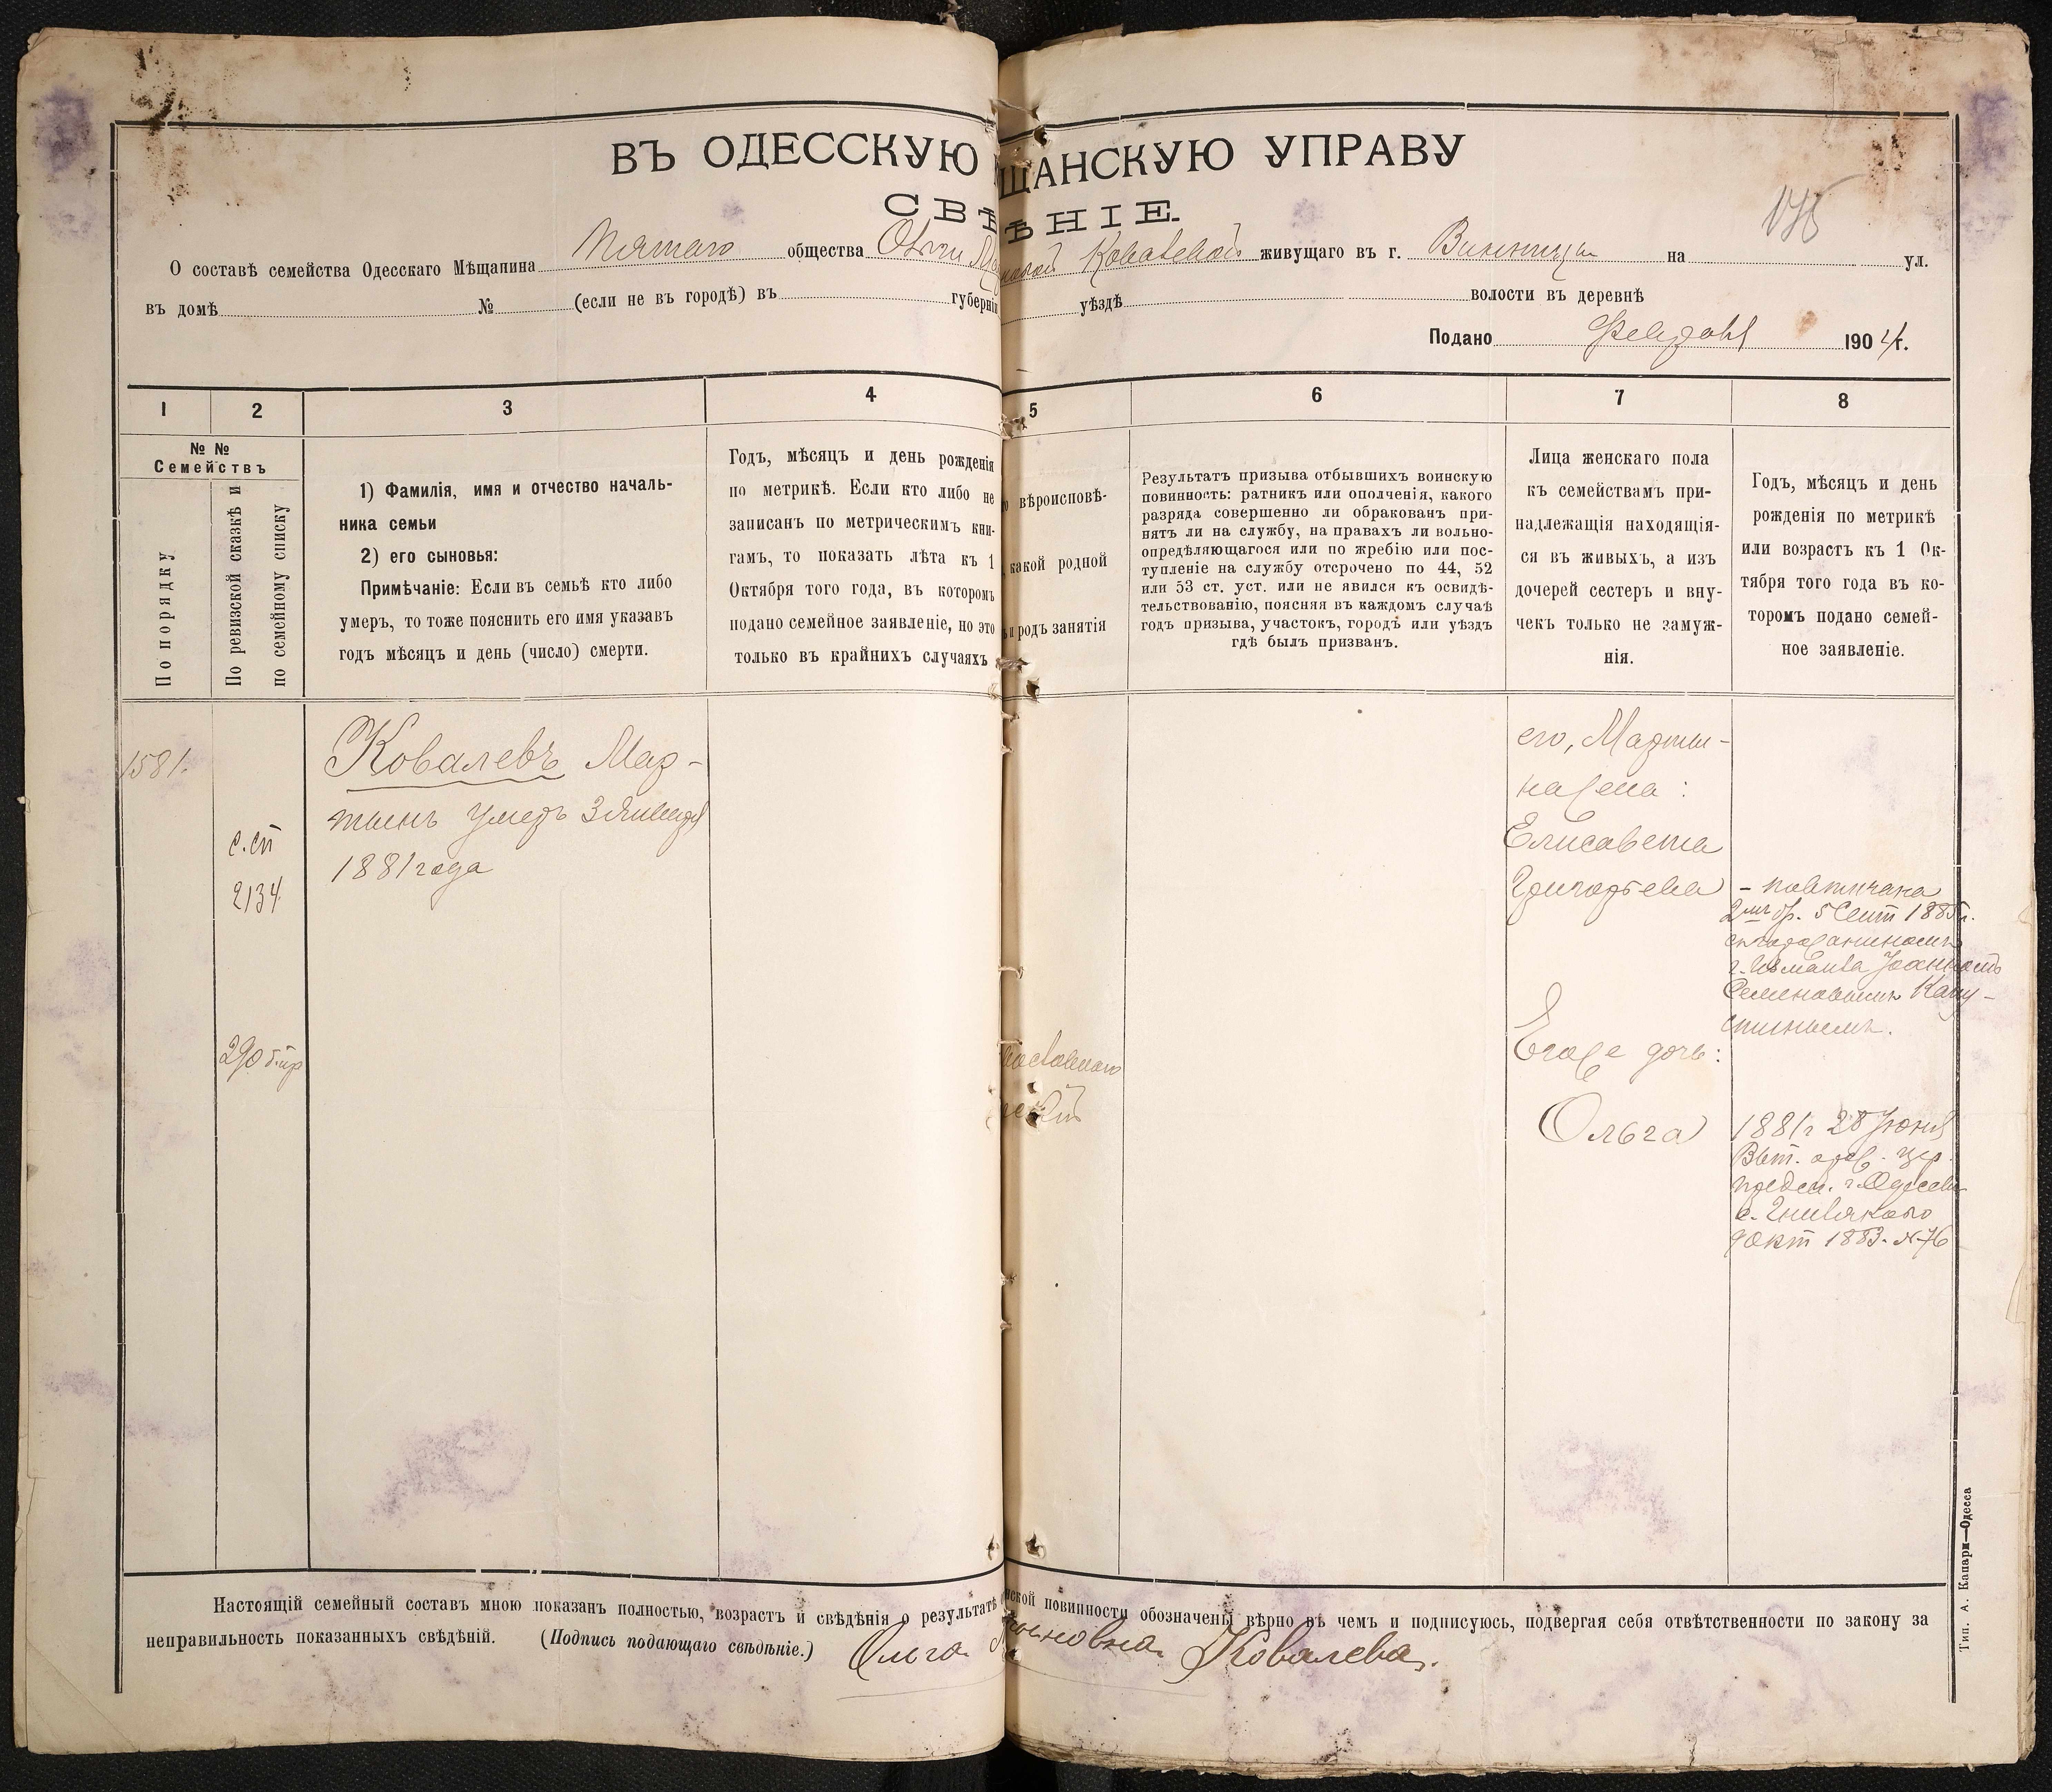 ВЪ ОДЕССКУЮ ЩАНСКУЮ УПРАВУ
СВѢ ѢНІЕ.
О составѣ семейства Одесскаго Мѣщанина Пятаго общества Ковалевой живущаго въ г. Винница на ул.
въ домѣ № (если не въ городѣ) въ губерніи уѣздѣ волости въ деревнѣ
Подано 1904 г.
1 2 3 4 5 6 7 8
№ №
Семействъ
По порядку
По ревизской сказкѣ и
по семейному списку
1) Фамилія, имя и отчество началь-
ника семьи
2) его сыновья:
Примѣчаніе: Если въ семьѣ кто либо
умеръ, то тоже пояснить его имя указавъ
годъ мѣсяцъ и день (число) смерти.
Годъ, мѣсяцъ и день рожденія
по метрикѣ. Если кто либо не
записанъ по метрическимъ кни-
гамъ, то показать лѣта къ 1
Октября того года, въ которомъ
подано семейное заявленіе, но это
только въ крайнихъ случаяхъ
вѣроисповѣ-
какой родной
и родъ занятія
Результатъ призыва отбывшихъ воинскую
повинность: ратникъ или ополченія, какого
разряда совершенно ли обракованъ при-
нятъ ли на службу, на правахъ ли вольно-
опредѣляющагося или по жребію или пос-
тупленіе на службу отсрочено по 44, 52
или 53 ст. уст. или не явился къ освидѣ-
тельствованію, поясняя въ каждомъ случаѣ
годъ призыва, участокъ, городъ или уѣздъ
гдѣ былъ призванъ.
Лица женскаго пола
къ семействамъ при-
надлежащія находящія-
ся въ живыхъ, а изъ
дочерей сестеръ и вну-
чекъ только не замуж-
нія.
Годъ, мѣсяцъ и день
рожденія по метрикѣ
или возрастъ къ 1 Ок-
тября того года въ ко-
торомъ подано семей-
ное заявленіе.
1581.
с.сп
2134
290
Ковалевъ Мар-
тынъ умеръ 3 Января
1881 года
его, Марты-
на жена:
Елисавета
Григорьева
Егоже дочь:
Ольга
- повѣнчана
2мъ бр. 5 Сент 1885г.
съ горожаниномъ
г. Измаила Іоанномъ
Семеновымъ Капу-
стинымъ.
1881 г 28 Іюня
г. Одессы
9 Окт 1883. №76
Настоящій семейный составъ мною показанъ полностью, возрастъ и свѣдѣнія о результатѣ нской повинности обозначены вѣрно въ чемъ и подписуюсь, подвергая себя отвѣтственности по закону за
неправильность показанныхъ свѣдѣній. (Подпись подающаго свѣдѣніе.) Ольга новна Ковалева.
Тип. А. Капари—Одесса